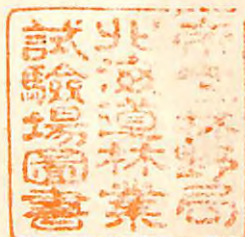 帝室林野局
北海道林業
試験場圖書